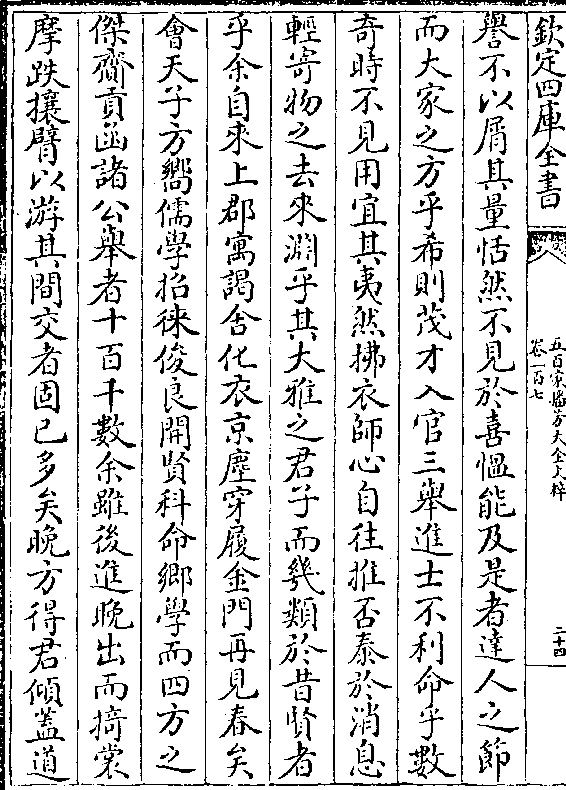 欽定四庫全書
五百家播芳大全文粹
卷一百七
二十四
譽不以屑其量恬然不見於喜慍能及是者達人之節
而大家之方乎希則茂才入官三舉進士不利命乎數
奇時不見用宜其夷然拂衣師心自往推否泰於消息
輕寄物之去來淵乎其大雅之君子而幾類於昔賢者
乎余自來上郡寓謁舍化衣京塵穿履金門再見春矣
會天子方嚮儒學招徠俊良開賢科命鄉學而四方之
傑齎貢函諸公舉者十百千數余雖後進晚出而掎裳
摩跌攘臂以游其間交者固已多矣晚方得君傾蓋道